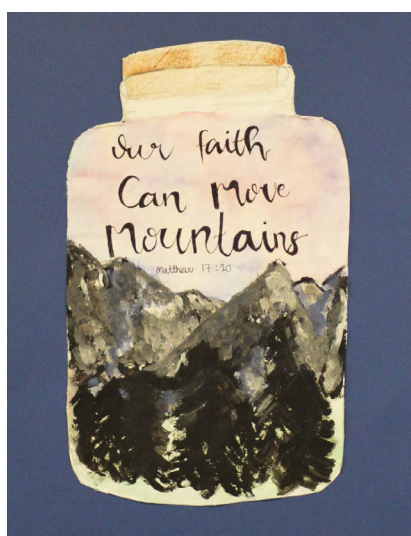 our faith
Can Move
Mountains
Matthew 17:20